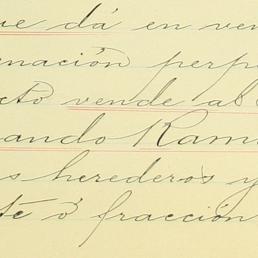 ue dá en ven
enación perp
cto vende al S
ando Rami
s herederos y
te ó fracción